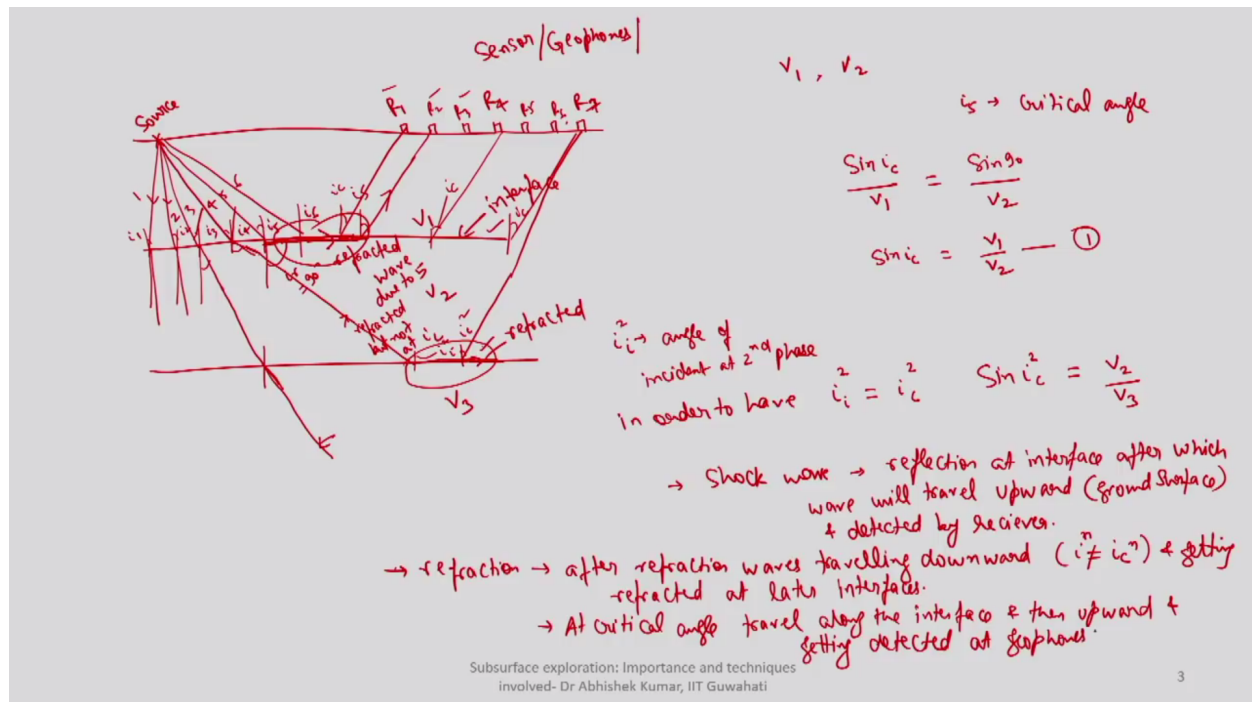 Sensor/Geophones
Source
R1 R2 R3 R4 R5 R6 R7
V1, V2
i5 → Critical angle
Sin ic / V1 = Sin 90 / V2
Sin ic = V1 / V2 — ①
1 2 3 4 5 6
i1 i2 i3 i4 i5 i6 ic i5
V1
ic
interface
ic
i5 90
refracted
wave
due to 5
V2
refracted
but not
at ic
ii² ic²
refracted
V3
ii² → angle of
incident at 2nd phase
in order to have ii² = ic² Sin ic² = V2 / V3
→ Shock wave → reflection at interface after which
wave will travel upward (ground Surface)
& detected by reciever.
→ refraction → after refraction waves travelling downward (iⁿ ≠ icⁿ) & getting
refracted at later interfaces.
→ At critical angle travel along the interface & then upward &
getting detected at geophones.
Subsurface exploration: Importance and techniques
involved- Dr Abhishek Kumar, IIT Guwahati
3